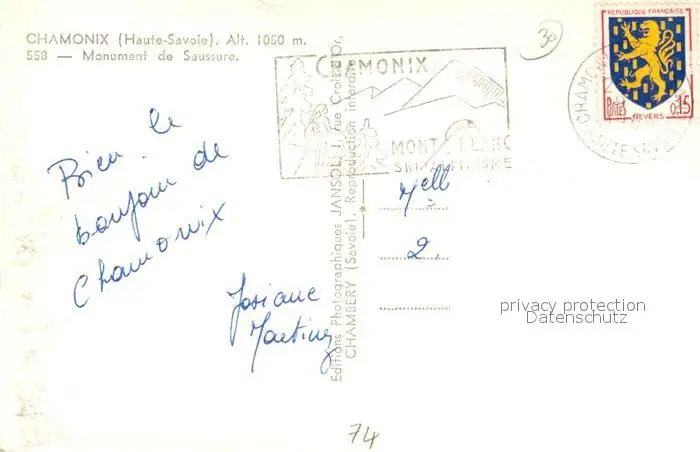 CHAMONIX (Haute-Savoie). Alt. 1050 m.
558 — Monument de Saussure.
Bien le
bonjour de
Chamonix
Josiane
Martinez
Editions Photographiques JANSOL, 1, rue Croix-d'Or,
CHAMBERY (Savoie). Reproduction interdite
CHAMONIX
MONT BLANC
30
REPUBLIQUE FRANÇAISE
POSTES
0,15
NEVERS
CHAMONIX
Mell
2.
privacy protection
Datenschutz
74